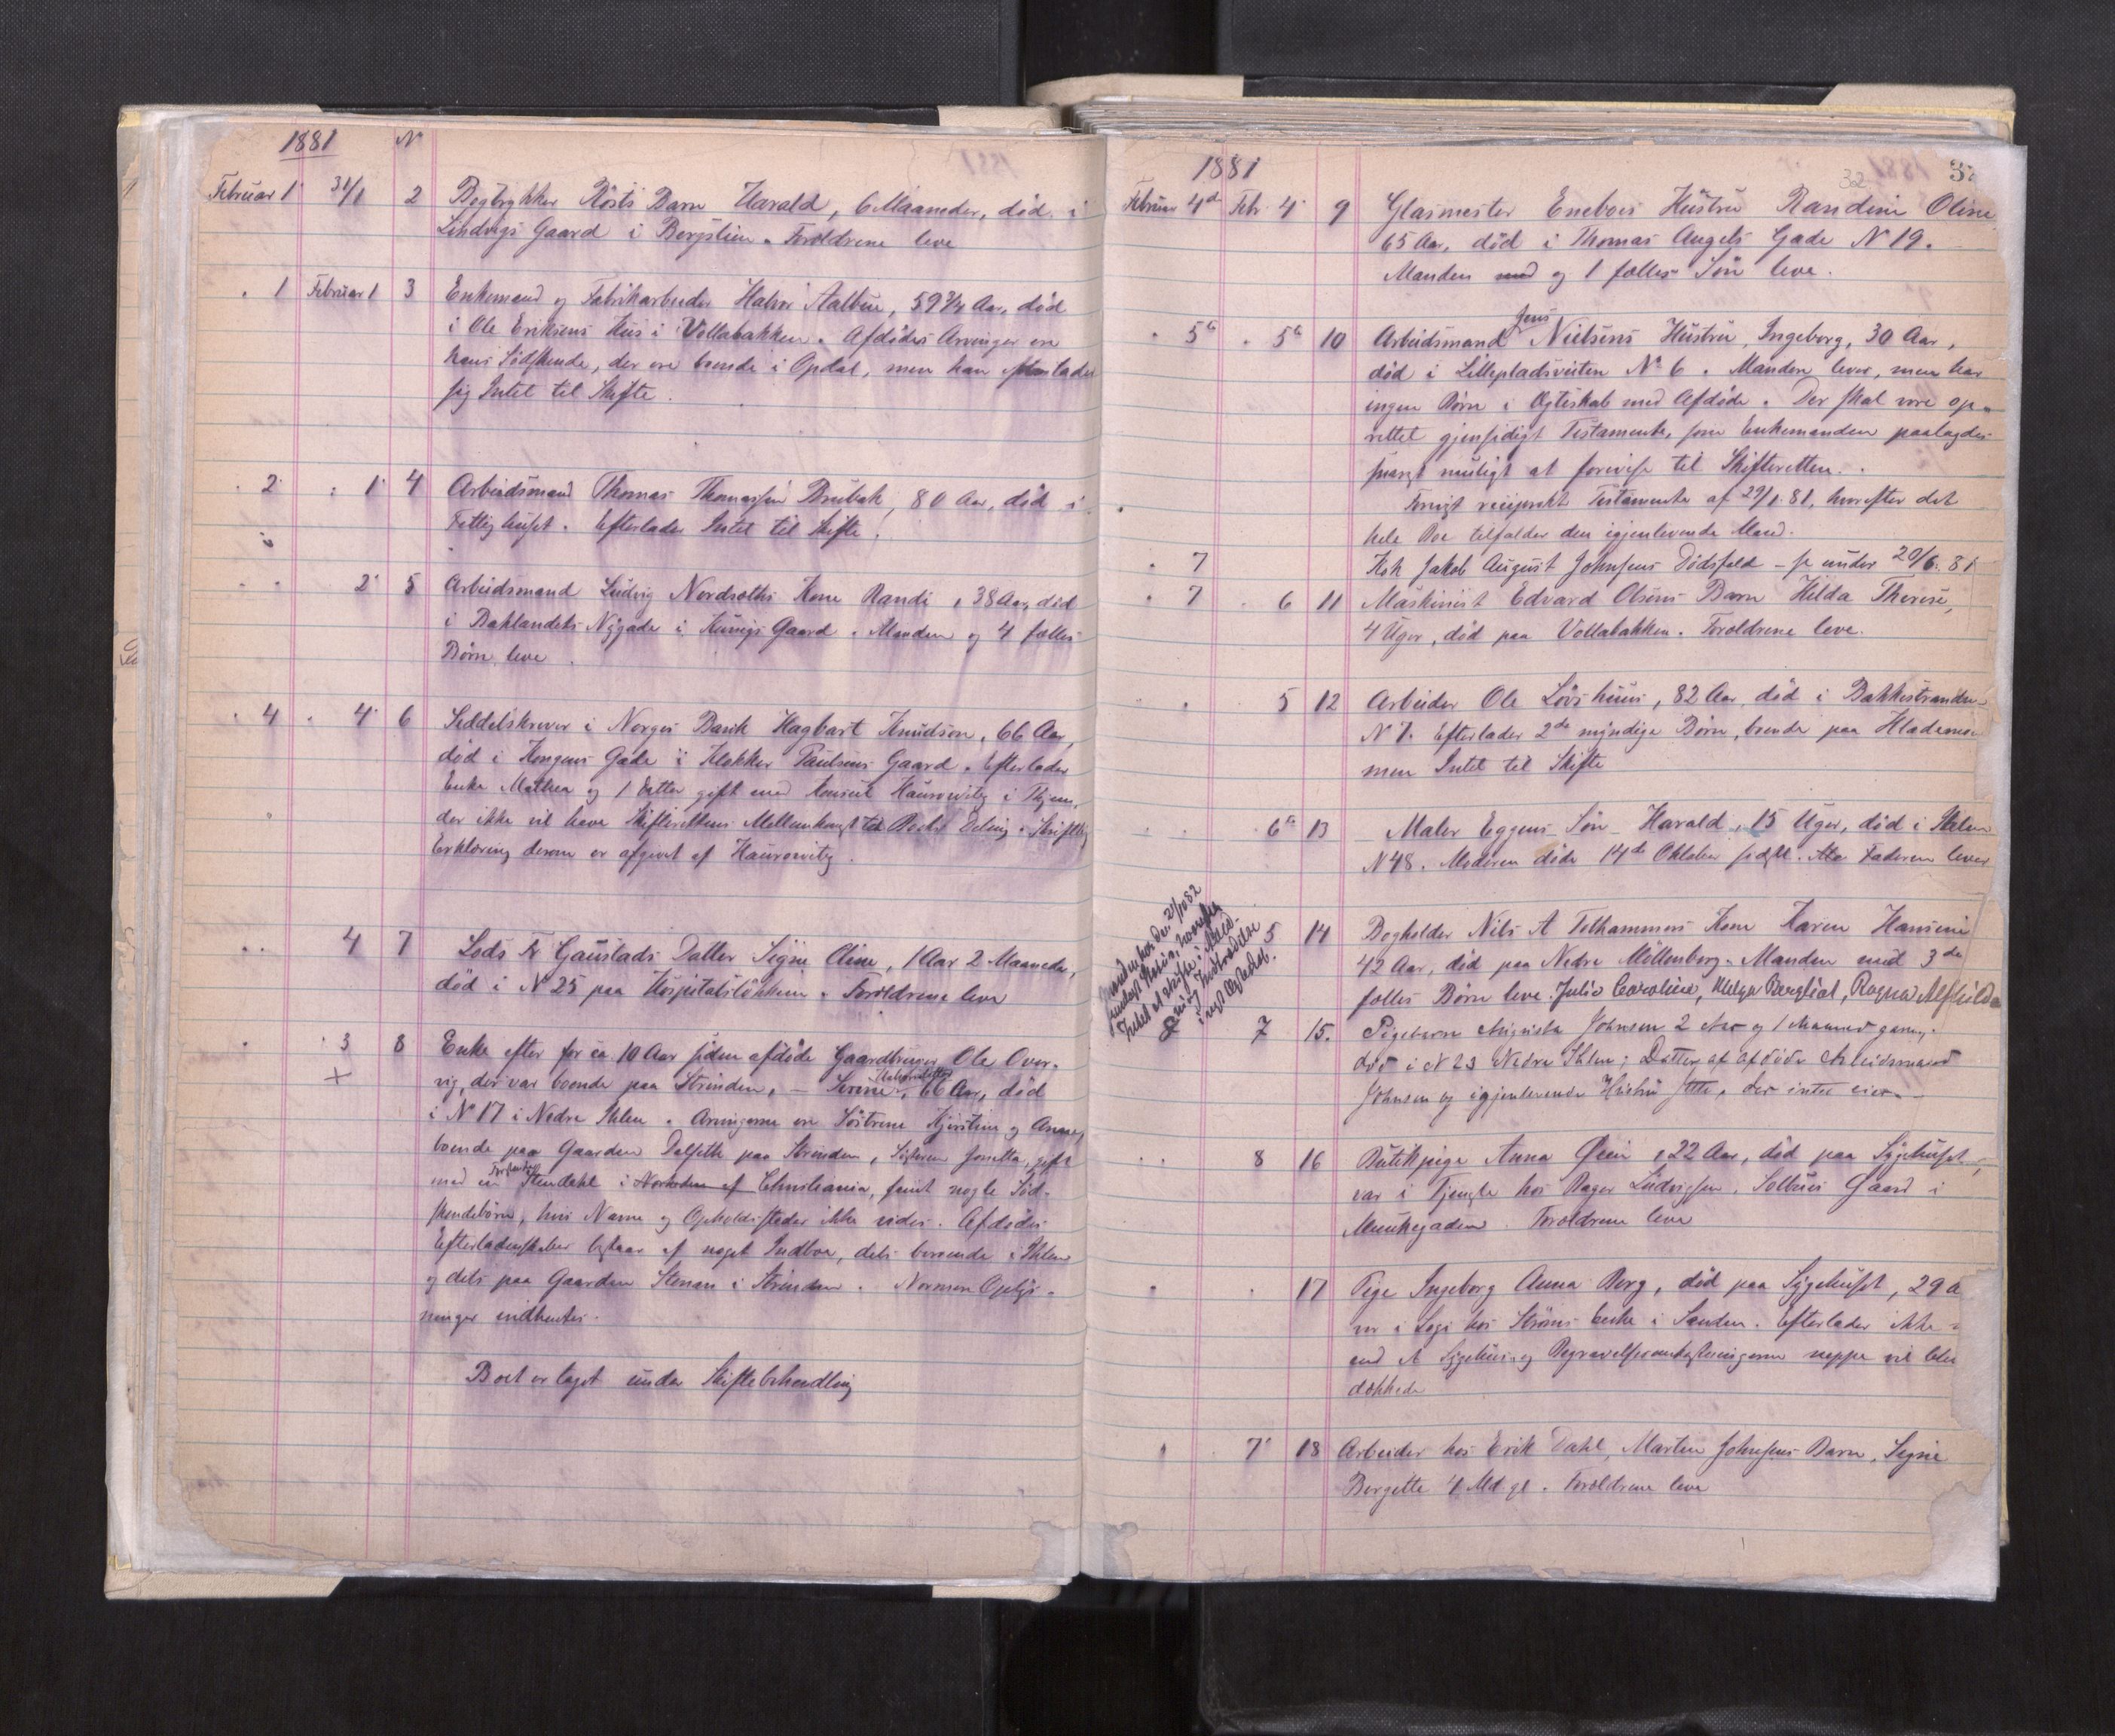 1881 N
Februar 1 31/1 2 Bogtrykker Rösts Barn Harald, 6 Maaneder, död i
Lindvigs Gaard i Bergslien. Forældrene leve
" 1 Februar 1 3 Enkemand og Fabrikarbeider Halvor Aalbue, 59 3/4 Aar, död
i Ole Eriksens Hus i Vollabakken. Afdödes Arvinger ere
hans Södskende, der ere boende i Opdal, men han efterlader
sig Intet til Skifte.
" 2 " 1 4 Arbeidsmand Thomas Thomassen Brubak, 80 Aar, död i
Fattighuset. Efterlader Intet til Skifte.
" " 2 5 Arbeidsmand Ludvig Nordsæths Kone Randi, 38 Aar, död
i Baklandets Nygade i Gaard. Manden og 4 fælles
Börn leve.
" 4 " 4 6 Seddelskriver i Norges Bank Hagbart Knudson, 66 Aar,
död i Kongens Gade i Klokker Paulsens Gaard. Efterlader
Enke Mathea og 1 Datter gift med Konsul Haurowitz i
der ikke vil have Skifterettens Mellemkomst til Boets Deling. Skriftlig
Erklæring derom er afgivet af Haurowitz.
" " 4 7 Lods Fr Gaustads Datter Signe Oline, 1 Aar 2 Maaneder,
död i N 25 paa Hospitalslökken. Forældrene leve
" " 3 8 Enke efter for ca. 10 Aar siden afdöde Gaardbruger Ole Over-
vig, der var boende paa Strinden, – Serine, 66 Aar, död
i No 17 i Nedre Ihlen. Arvingerne ere Söstrene Kjerstine og Anne,
boende paa Gaarden Dalseth paa Strinden, Sösteren Jonetta, gift
med en Stendahl i Norheden af Christiania, samt nogle Söd-
skendebörn, hvis Navne og Opholdssteder ikke vides. Afdödes
Efterladenskaber bestaar af noget Indboe, dels beroende i Ihlen
og dels paa Gaarden Stenan i Strinden. Nærmere Oplys-
ninger indhentes.
Boet er taget under Skiftebehandling
1881 32
Februar 4de Febr. 4 9 Glasmester Eneboes Hustru Randine Oline
65 Aar, död i Thomas Angels Gade N 19.
Manden med og 1 fælles Sön leve.
" 5te " 5te 10 Arbeidsmand Jens Nielsens Hustru, Ingeborg, 30 Aar,
död i Lillepladsveiten No 6. Manden lever, men har
ingen Börn i Ægteskab med Afdöde. Der skal være op-
rettet gjensidigt Testamente, som Enkemanden paalagdes
snarest muligt at forevise til Skifteretten.
Forevist reciprokt Testamente af 29/1. 81, hvorefter det
hele Boe tilfalder den igjenlevende Mand.
" 7 Kok Jakob August Johnsens Dödsfald – se under 20/6. 81
" 7 " 6 11 Maskinist Edvard Olsens Barn Hilda Therese,
4 Uger, död paa Vollabakken. Forældrene leve.
" " 5 12 Arbeider Ole Lövshuus, 82 Aar, död i Bakkestranden
N 7. Efterlader 2de myndige Börn, boende paa Hlademe
men Intet til Skifte
" " 6te 13 Maler Eggens Sön Harald, 15 Uger, död i Ihlen
N 48. Moderen döde 14de Oktober sidstl. Faderen lever
5 14 Bogholder Nils A Folhammers Kone Karen Hansine
42 Aar, död paa Nedre Möllenberg. Manden med 3de
fælles Börn leve. Julie Caroline, Helga Bergliot, Ragna Alfhilda
Manden har den 21/10 82
Intet at skifte i
ved Indtrædelse
i nyt Ægteskab.
7 15. Pigebarn Augusta Johnsen 2 Aar og 1 Maaned gam.
död i N 23 Nedre Ihlen; Datter af afdöde Arbeidsmand
Johnsen og igjenlevende Hustru Jette, der intet eier.
" " 8 16 Butikpige Anna Öien, 22 Aar, död paa Sygehuset,
var i Tjeneste hos Bager Ludvigsen, Solbues Gaard i
Munkegaden. Forældrene leve
" " 17 Pige Ingeborg Anna Berg, död paa Sygehuset, 29 A
var i Logi hos Ströms Enke i Sanden. Efterlader ikke
end at Sygehus- og Begravelsesomkostningerne neppe vil blive
dækkede
" " 7 18 Arbeider hos Erik Dahl, Martin Johnsens Barn, Signe
Bergette 4 Md. gl. Forældrene leve